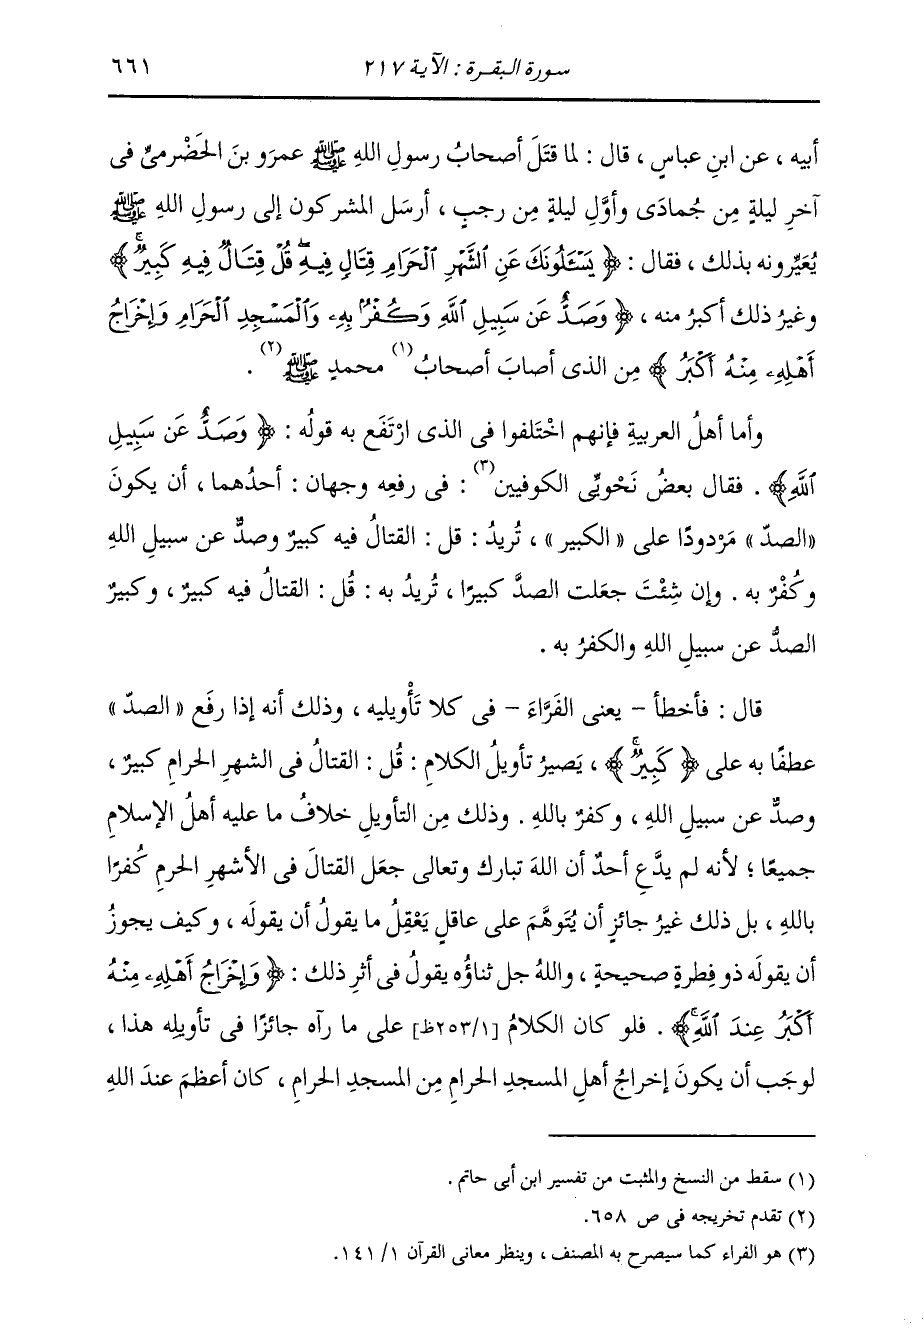 سورة البقرة : الآية ٢١٧
٦٦١
أبيه ، عن ابنِ عباسٍ ، قال : لما قتَلَ أصحابُ رسولِ اللهِ ﷺ عمرَو بنَ الحَضْرميِّ فى
آخرِ ليلةٍ مِن جُمادَى وأوَّلِ ليلةٍ مِن رجبٍ ، أرسَل المشركون إلى رسولِ اللهِ ﷺ
يُعَيِّرونه بذلك ، فقال : ﴿ يَسْـَٔلُونَكَ عَنِ ٱلشَّهْرِ ٱلْحَرَامِ قِتَالٍ فِيهِۖ قُلْ قِتَالٌ فِيهِ كَبِيرٌۚ ﴾
وغيرُ ذلك أكبرُ منه ، ﴿ وَصَدٌّ عَن سَبِيلِ ٱللَّهِ وَكُفْرٌۢ بِهِۦ وَٱلْمَسْجِدِ ٱلْحَرَامِ وَإِخْرَاجُ
أَهْلِهِۦ مِنْهُ أَكْبَرُ ﴾ مِن الذى أصابَ أصحابُ(١) محمدٍ ﷺ(٢) .
وأما أهلُ العربيةِ فإنهم اخْتَلفوا فى الذى ارْتَفَع به قولُه : ﴿ وَصَدٌّ عَن سَبِيلِ
ٱللَّهِ ﴾ . فقال بعضُ نَحْويِّى الكوفيين(٣) : فى رفعِه وجهان : أحدُهما ، أن يكونَ
«الصدّ» مَرْدودًا على « الكبير » ، تُريدُ : قل : القتالُ فيه كبيرٌ وصدٌّ عن سبيلِ اللهِ
وكُفْرٌ به . وإن شِئْتَ جعَلت الصدَّ كبيرًا ، تُريدُ به : قُل : القتالُ فيه كبيرٌ ، وكبيرٌ
الصدُّ عن سبيلِ اللهِ والكفرُ به .
قال : فأخطأ - يعنى الفَرَّاءَ - فى كلا تَأْويليه ، وذلك أنه إذا رفَع « الصدّ »
عطفًا به على ﴿ كَبِيرٌۚ ﴾ ، يَصيرُ تأويلُ الكلامِ : قُل : القتالُ فى الشهرِ الحرامِ كبيرٌ ،
وصدٌّ عن سبيلِ اللهِ ، وكفرٌ باللهِ . وذلك مِن التأويلِ خلافُ ما عليه أهلُ الإسلامِ
جميعًا ؛ لأنه لم يدَّعِ أحدٌ أن اللهَ تبارك وتعالى جعَل القتالَ فى الأشهرِ الحرمِ كُفرًا
باللهِ ، بل ذلك غيرُ جائزٍ أن يُتَوهَّمَ على عاقلٍ يَعْقِلُ ما يقولُ أن يقولَه ، وكيف يجوزُ
أن يقولَه ذو فِطرةٍ صحيحةٍ ، واللهُ جل ثناؤُه يقولُ فى أثرِ ذلك : ﴿ وَإِخْرَاجُ أَهْلِهِۦ مِنْهُ
أَكْبَرُ عِندَ ٱللَّهِۚ ﴾ . فلو كان الكلامُ [٢٥٣/١ظ] على ما رآه جائزًا فى تأويلِه هذا ،
لوجَب أن يكونَ إخراجُ أهلِ المسجدِ الحرامِ مِن المسجدِ الحرامِ ، كان أعظمَ عندَ اللهِ
(١) سقط من النسخ والمثبت من تفسير ابن أبى حاتم .
(٢) تقدم تخريجه فى ص ٦٥٨.
(٣) هو الفراء كما سيصرح به المصنف ، وينظر معانى القرآن ١/ ١٤١.